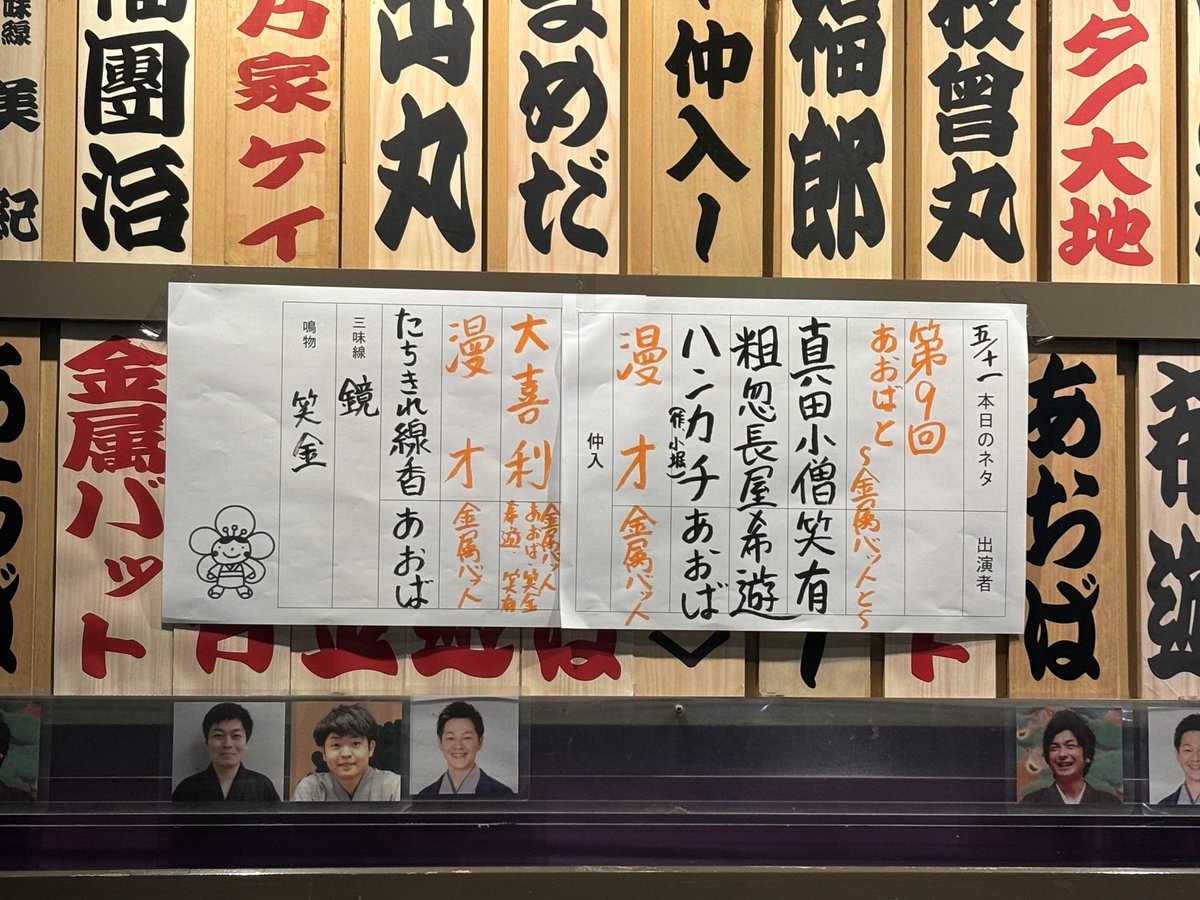 味線 美紀
福團治
万家ケイ
出丸
まめだ
仲入ー
福郎
枚曾丸
タノ大地
五/十一 本日のネタ 出演者
第9回
あおばと〜金属バットと〜
真田小僧 笑有
粗忽長屋 希遊
ハンカチ(作、小堀) あおば
仲入
漫才 金属バット
大喜利 金属バット あおば・笑金 希遊 笑有
漫才 金属バット
たちきれ線香 あおば
三味線 鏡
鳴物 笑金
希遊
あおば
金属バット